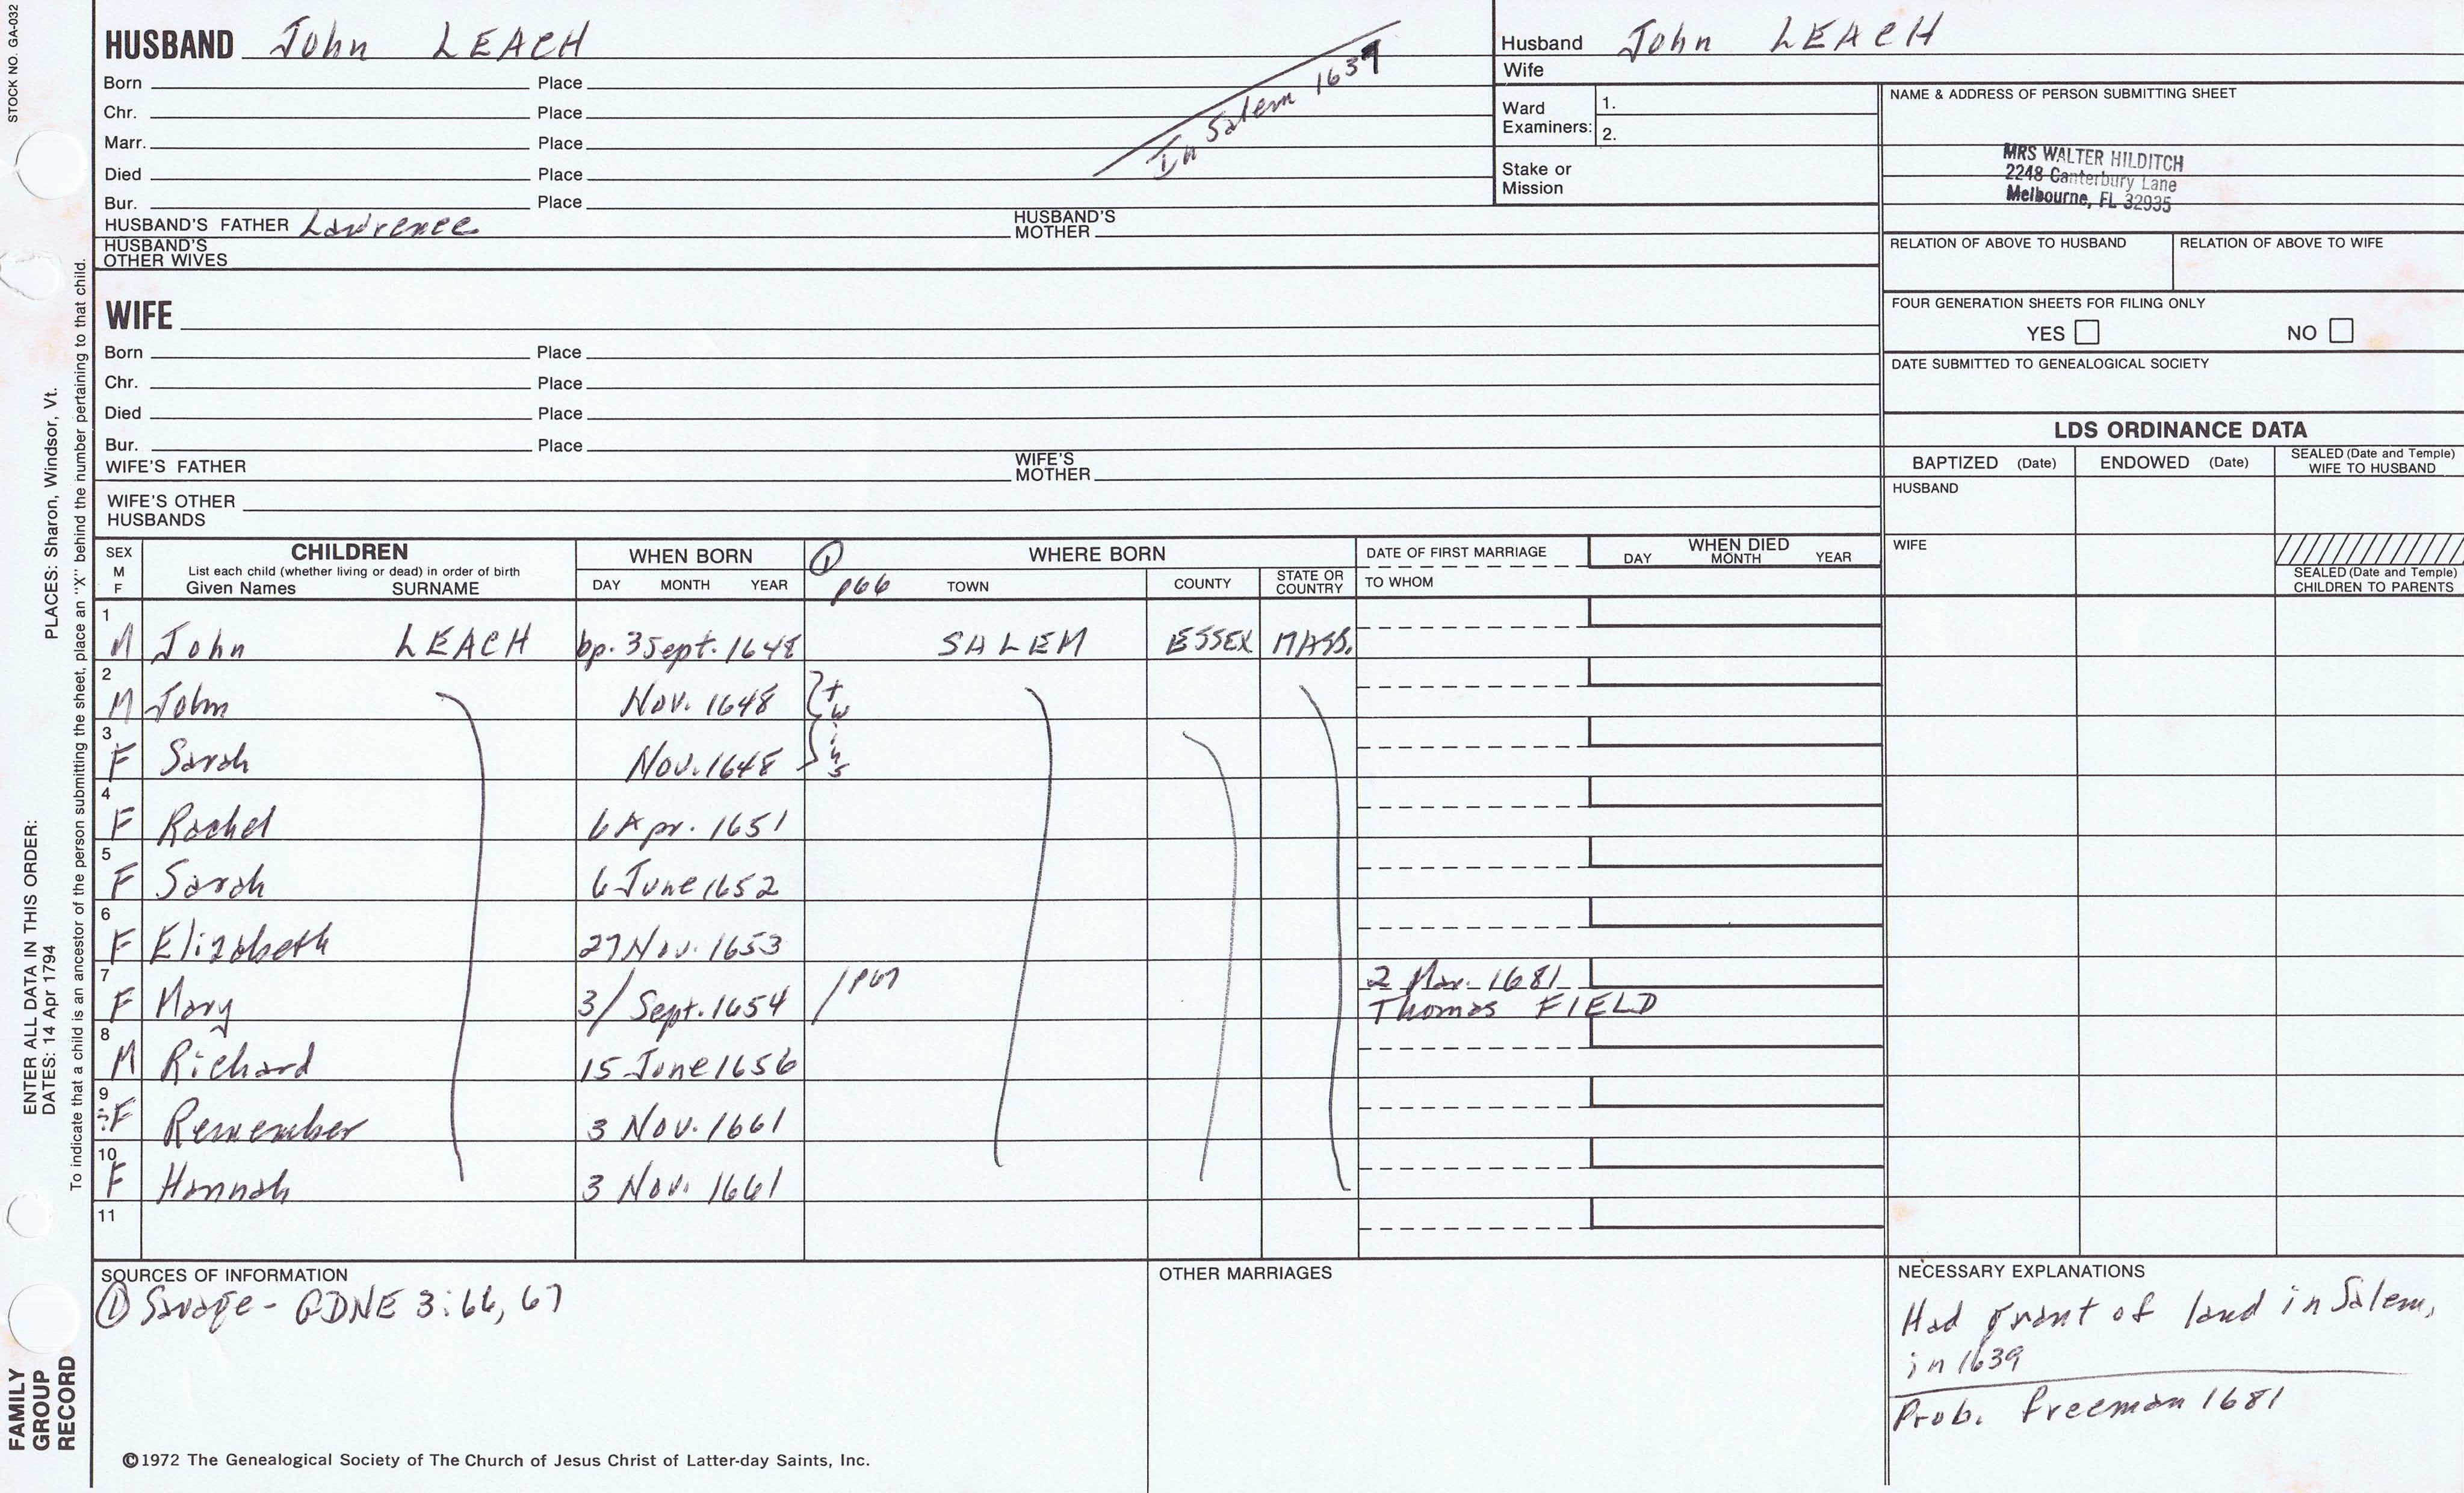 STOCK NO. GA-032
HUSBAND John LEACH
Born Place
Chr. Place
Marr. Place
Died Place
Bur. Place
In Salem 1637
HUSBAND'S FATHER Lawrence HUSBAND'S MOTHER
HUSBAND'S OTHER WIVES
WIFE
Born Place
Chr. Place
Died Place
Bur. Place
WIFE'S FATHER WIFE'S MOTHER
WIFE'S OTHER HUSBANDS
Husband John LEACH
Wife
Ward Examiners: 1.
2.
Stake or Mission
NAME & ADDRESS OF PERSON SUBMITTING SHEET
MRS WALTER HILDITCH
2248 Canterbury Lane
Melbourne, FL 32935
RELATION OF ABOVE TO HUSBAND RELATION OF ABOVE TO WIFE
FOUR GENERATION SHEETS FOR FILING ONLY
YES NO
DATE SUBMITTED TO GENEALOGICAL SOCIETY
LDS ORDINANCE DATA
BAPTIZED (Date) ENDOWED (Date) SEALED (Date and Temple) WIFE TO HUSBAND
HUSBAND
WIFE
SEALED (Date and Temple) CHILDREN TO PARENTS
SEX M F
CHILDREN
List each child (whether living or dead) in order of birth
Given Names SURNAME
WHEN BORN
DAY MONTH YEAR
1 p66
WHERE BORN
TOWN COUNTY STATE OR COUNTRY
DATE OF FIRST MARRIAGE
TO WHOM
WHEN DIED
DAY MONTH YEAR
1 M John LEACH bp. 3 Sept. 1648 SALEM ESSEX MASS.
2 M John Nov. 1648 twins
3 F Sarah Nov. 1648
4 F Rachel 6 Apr. 1651
5 F Sarah 6 June 1652
6 F Elizabeth 27 Nov. 1653
7 F Mary 3/ Sept. 1654 / p67 2 Mar. 1681
Thomas FIELD
8 M Richard 15 June 1656
9 F Remember 3 Nov. 1661
10 F Hannah 3 Nov. 1661
11
SOURCES OF INFORMATION
1 Savage - GDNE 3:66, 67
OTHER MARRIAGES
NECESSARY EXPLANATIONS
Had grant of land in Salem,
in 1639
Prob. freeman 1681
©1972 The Genealogical Society of The Church of Jesus Christ of Latter-day Saints, Inc.
FAMILY GROUP RECORD
ENTER ALL DATA IN THIS ORDER:
DATES: 14 Apr 1794
PLACES: Sharon, Windsor, Vt.
To indicate that a child is an ancestor of the person submitting the sheet, place an "X" behind the number pertaining to that child.